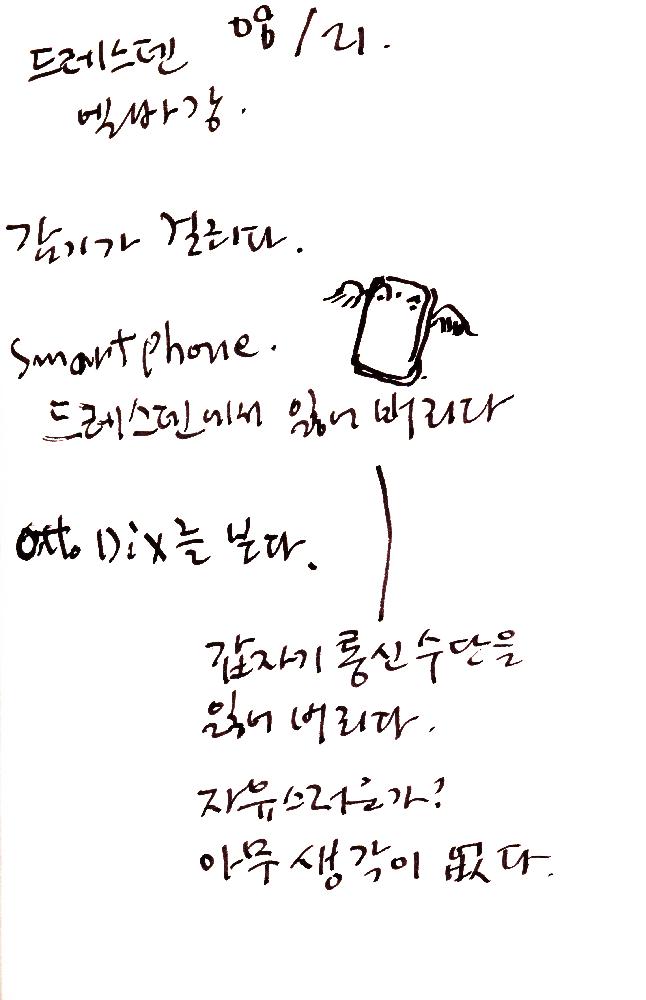 드레스덴
엘바강.
감기가 걸리다.
Smart phone.
드레스덴에서 잃어 버리다
Otto Dix를 보다.
갑자기 통신수단을
잃어 버리다.
자유스러운가?
아무 생각이 없다.